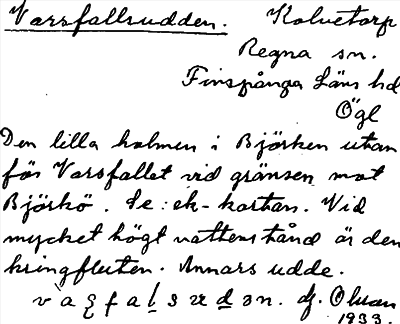 Varsfallsudden. Kolvetorp
Regna sn.
Finspånga Läns hd
Ögl
Den lilla holmen i Björken utan
för Varsfallet vid gränsen mot
Björkö. Se: ek-kartan. Vid
mycket högt vattenstånd är den
kringfluten. Annars udde.
1933.